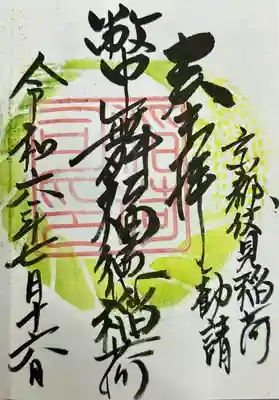 京都伏見稲荷
勧請
奉拝
幣舞福徳稲荷
令和六年七月十六日